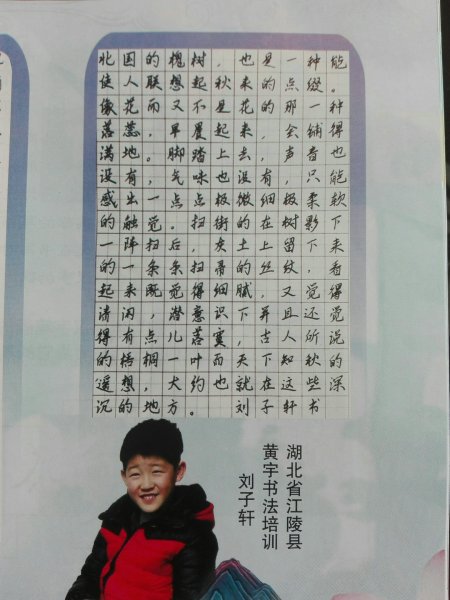 北国的槐树，也是一种能
使人联想起秋来的点缀。
像花而又不是花的那一种
落蕊，早晨起来，会铺得
满地。脚踏上去，声音也
没有，气味也没有，只能
感出一点点极微细极柔软
的触觉。扫街的在树影下
一阵扫后，灰土上留下来
的一条条扫帚的丝纹，看
起来既觉得细腻，又觉得
清闲，潜意识下并且还觉
得有点儿落寞，古人所说
的梧桐一叶而天下知秋的
遥想，大约也就在这些深
沉的地方。 刘子轩书
湖北省江陵县
黄宇书法培训
刘子轩